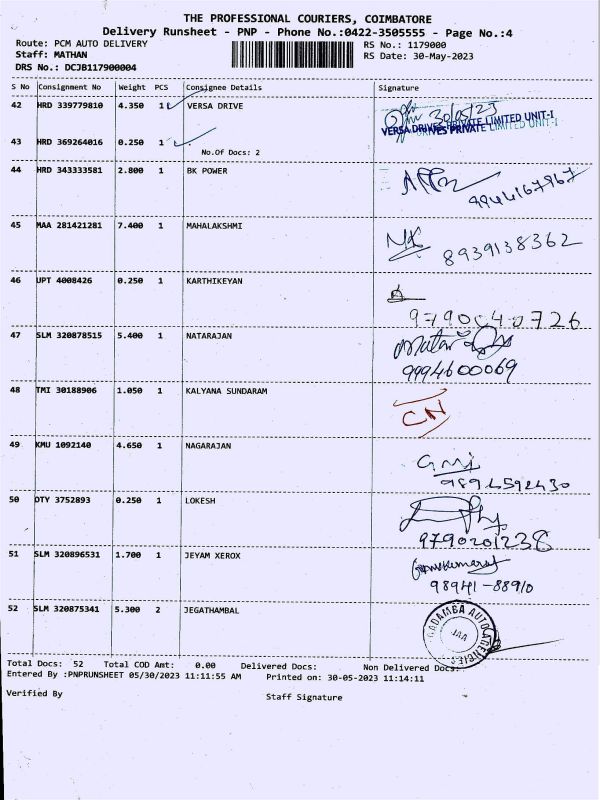 THE PROFESSIONAL COURIERS, COIMBATORE
Delivery Runsheet - PNP - Phone No.:0422-3505555 - Page No.:4
Route: PCM AUTO DELIVERY
RS No.: 1179000
Staff: MATHAN
RS Date: 30-May-2023
DRS No.: DCJB117900004
S No Consignment No Weight PCS Consignee Details Signature
42 HRD 339779810 4.350 1 VERSA DRIVE
30/05/23
VERSA DRIVES PRIVATE LIMITED UNIT-I
43 HRD 369264016 0.250 1
No.Of Docs: 2
44 HRD 343333581 2.800 1 BK POWER
9944167967
45 MAA 281421281 7.400 1 MAHALAKSHMI
8939138362
46 UPT 4008426 0.250 1 KARTHIKEYAN
9790040726
47 SLM 320878515 5.400 1 NATARAJAN
9994600069
48 TMI 30188906 1.050 1 KALYANA SUNDARAM
CN
49 KMU 1092140 4.650 1 NAGARAJAN
9894592430
50 OTY 3752893 0.250 1 LOKESH
9790201238
51 SLM 320896531 1.700 1 JEYAM XEROX
98941-88910
52 SLM 320875341 5.300 2 JEGATHAMBAL
KADAMBA AUTO AGENCIES
JAA
Total Docs: 52 Total COD Amt: 0.00 Delivered Docs: Non Delivered Docs:
Entered By :PNPRUNSHEET 05/30/2023 11:11:55 AM Printed on: 30-05-2023 11:14:11
Verified By
Staff Signature